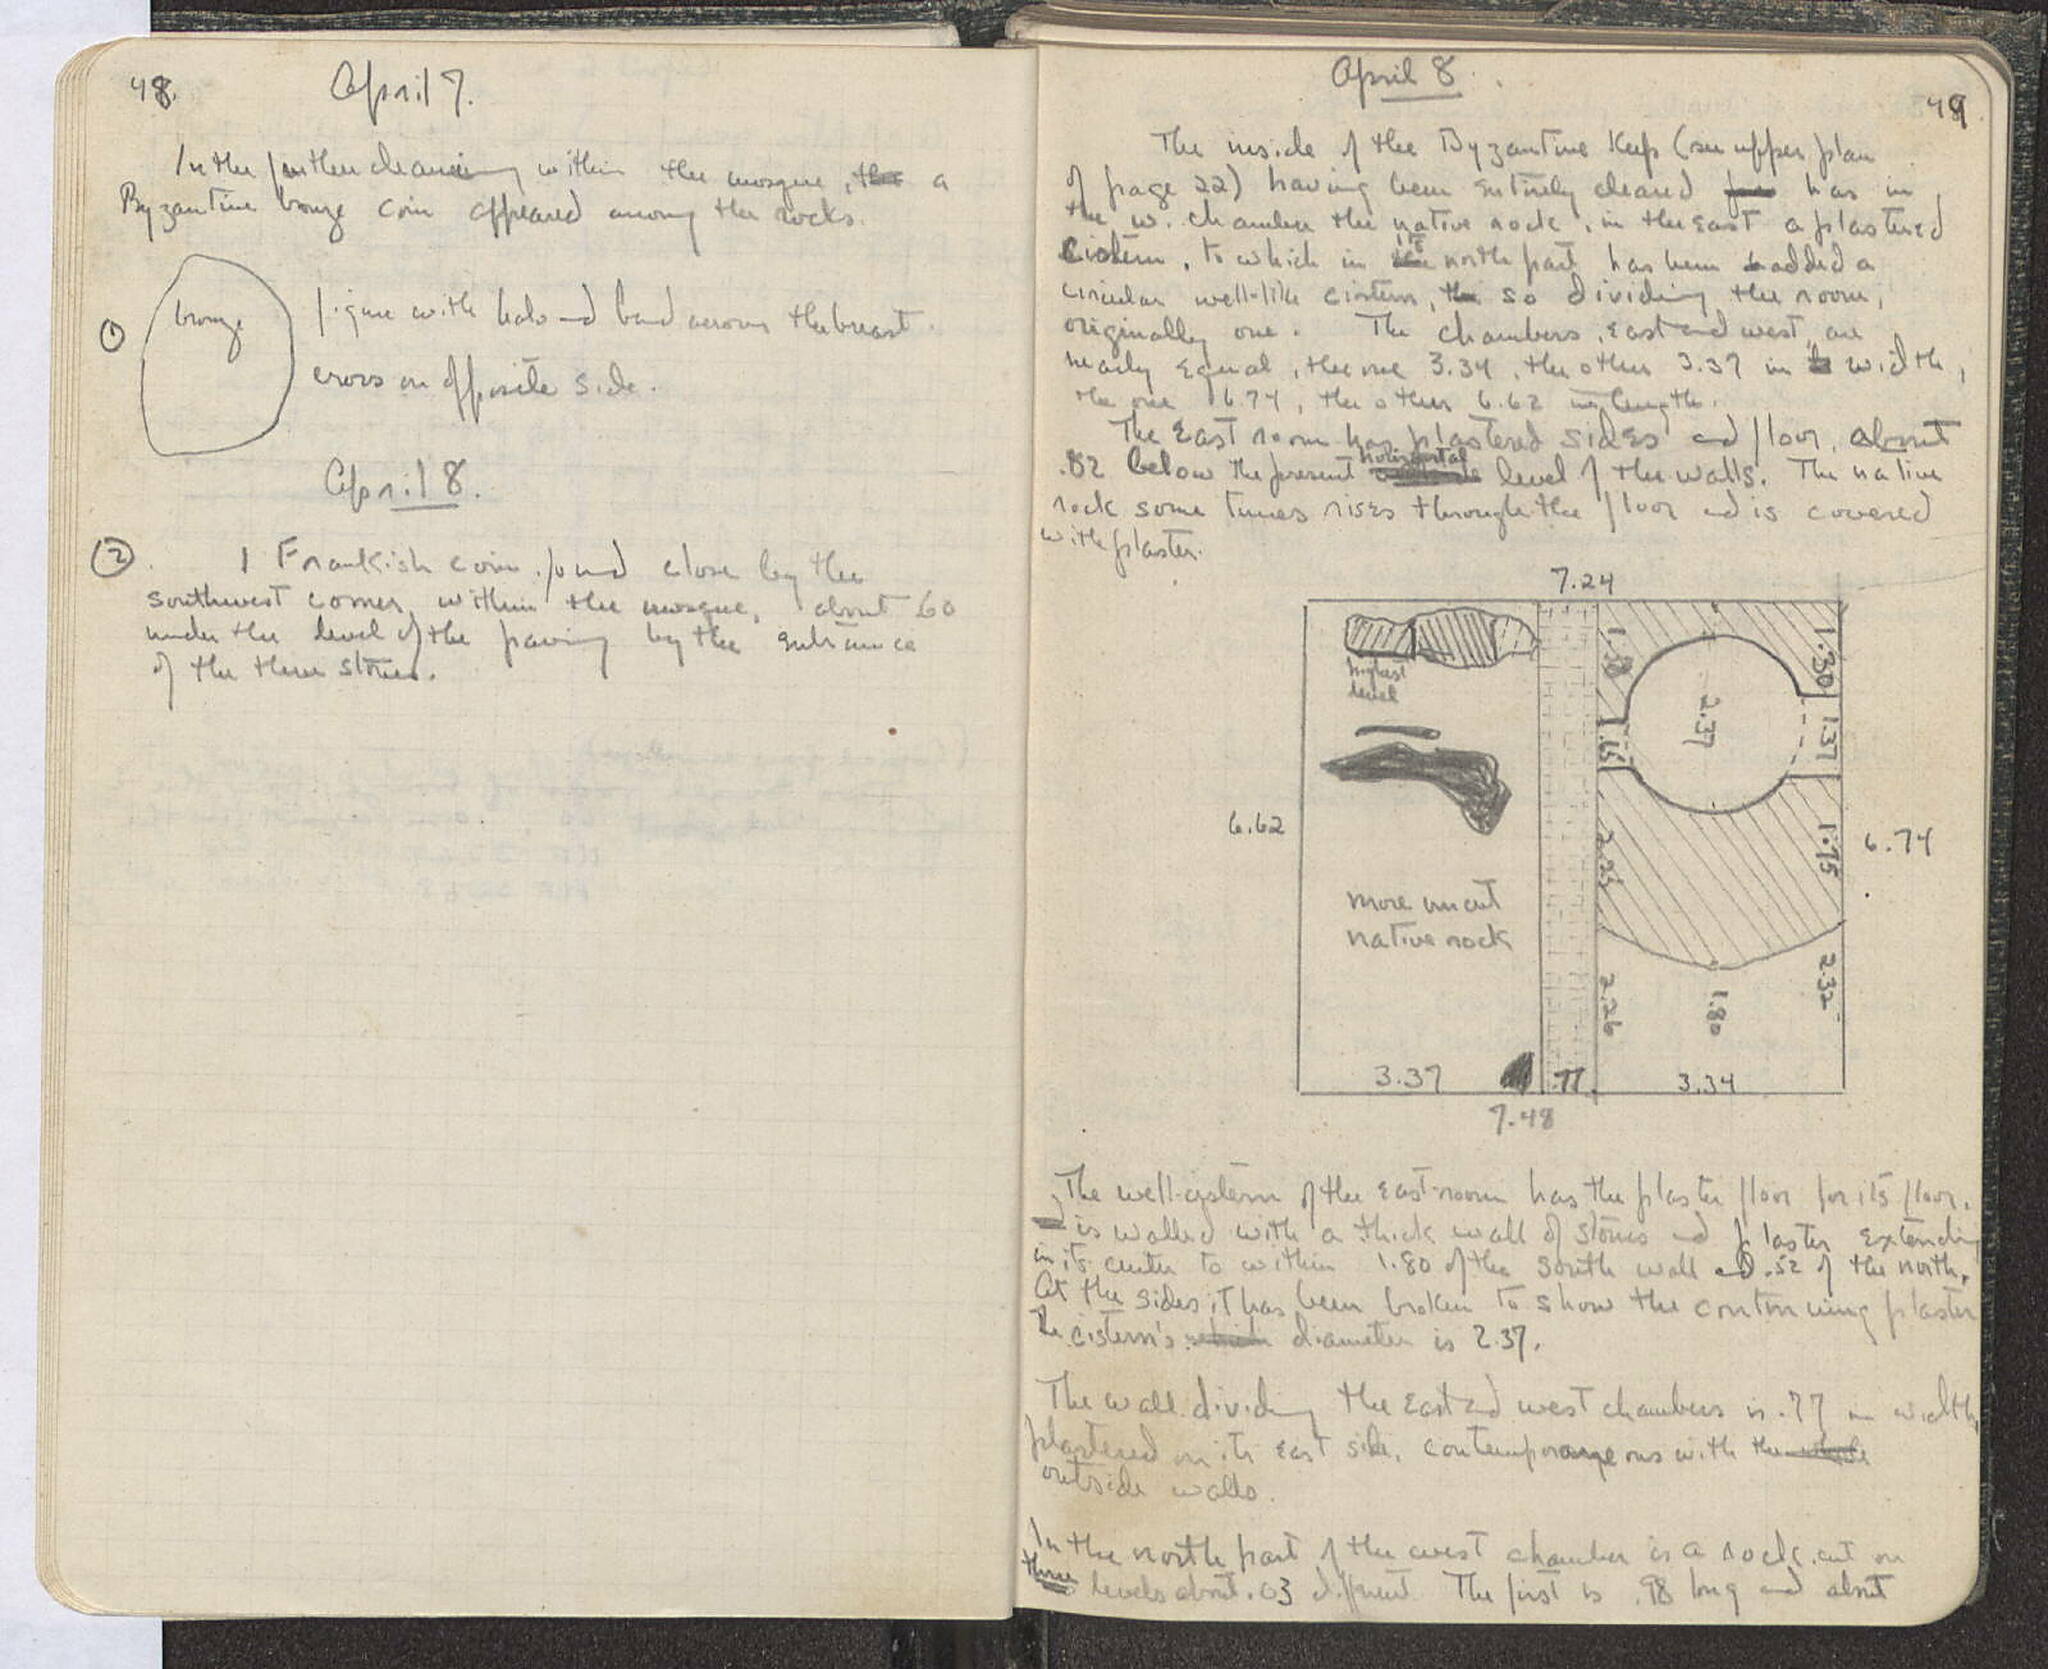 48.
April 7.
In the further cleaning within the mosque, a
Byzantine bronze coin appeared among the rocks.
1
bronze
figure with halo and band across the breast.
cross on opposite side.
April 8.
2.
1 Frankish coin found close by the
southwest corner, within the mosque, about 60
under the level of the paving by the entrance
of the three stones.
April 8.
49
The inside of the Byzantine Keep (see upper plan
of page 22) having been entirely cleared has in
the w. chamber the native rock, in the east a plastered
cistern, to which in its north part has been added a
circular well-like cistern, so dividing the room,
originally one. The chambers, east and west, are
nearly equal, the one 3.34, the other 3.37 in width,
the one 6.74, the other 6.62 in length.
The East room has plastered sides and floor, about
.82 below the present horizontal level of the walls. The native
rock some times rises through the floor and is covered
with plaster.
7.24
highest
level
1.30
2.37
1.37
.15
6.62
1.75
6.74
more uncut
native rock
2.32
2.26
1.80
3.37
.77
3.34
7.48
The well-cistern of the east room has the plaster floor for its floor,
is walled with a thick wall of stones and plaster extending
in its center to within 1.80 of the south wall and .52 of the north.
At the sides it has been broken to show the continuing plaster
The cistern's diameter is 2.37.
The wall dividing the East and west chambers is .77 in width,
plastered on its east side, contemporaneous with the
outside walls.
In the north part of the west chamber is a rock cut on
three levels about .03 different. The first is .98 long and about